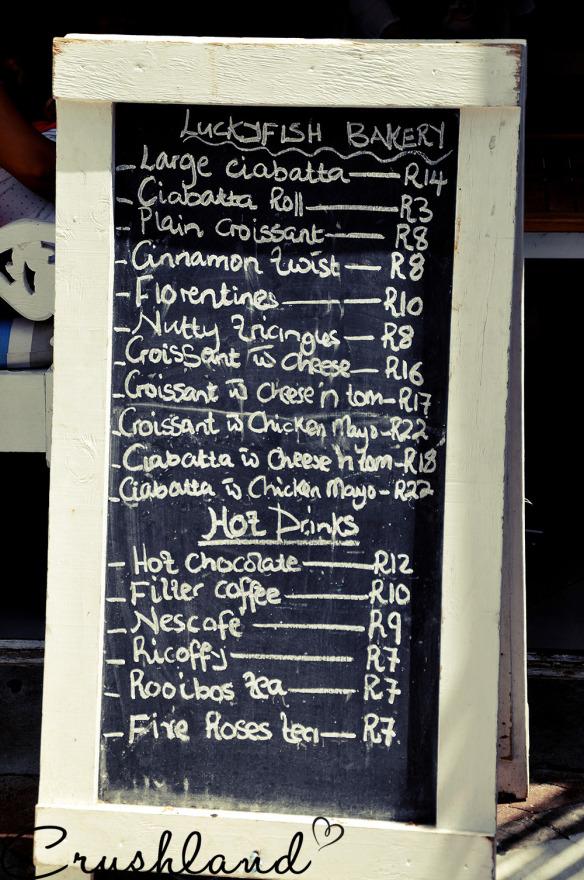 LUCKYFISH BAKERY
- Large ciabatta — R14
- Ciabatta Roll — R3
- Plain Croissant — R8
- Cinnamon twist — R8
- Florentines — R10
- Nutty triangles — R8
- Croissant w̄ Cheese — R16
- Croissant w̄ Cheese 'n tom - R17
- Croissant w̄ Chicken Mayo - R22
- Ciabatta w̄ Cheese 'n tom - R18
- Ciabatta w̄ Chicken Mayo - R22
Hot Drinks
- Hot chocolate — R12
- Filter coffee — R10
- Nescafe — R9
- Ricoffy — R7
- Rooibos tea — R7
- Five Roses tea — R7
Crushland